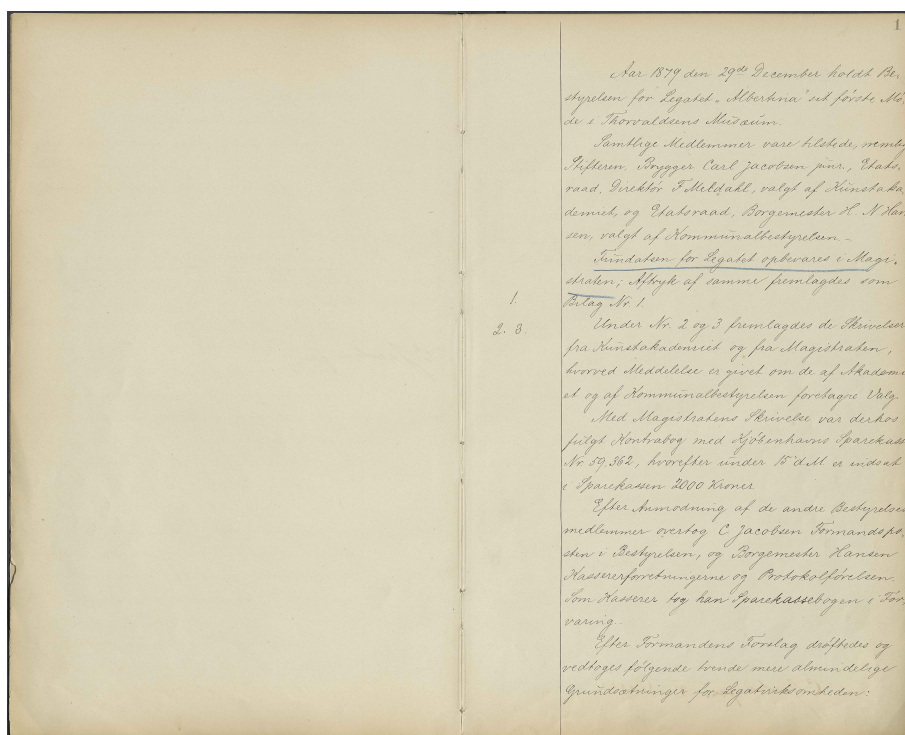 1
Aar 1879 den 29de December holdt Be-
styrelsen for Legatet „Albertina" sit første Mö-
de i Thorvaldsens Museum.
Samtlige Medlemmer vare tilstede, nemlig
Stifteren, Brygger Carl Jacobsen junr., Etats-
raad, Direktör F Meldahl, valgt af Kunstaka
demiet, og Etatsraad, Borgemester H. N Han
sen, valgt af Kommunalbestyrelsen –
Fundatsen for Legatet opbevares i Magi-
straten; Aftryk af samme fremlagdes som
1.
Bilag Nr. 1
2. 3.
Under Nr. 2 og 3 fremlagdes de Skrivelser
fra Kunstakademiet og fra Magistraten,
hvorved Meddelelse er givet om de af Akademi
et og af Kommunalbestyrelsen foretagne Valg
Med Magistratens Skrivelse var derhos
fulgt Kontrabog med Kjöbenhavns Sparekass
Nr. 59,362, hvorefter under 15' d M er indsat
i Sparekassen 2000 Kroner
Efter Anmodning af de andre Bestyrelses
medlemmer overtog C Jacobsen Formandspo-
sten i Bestyrelsen, og Borgemester Hansen
Kassererforretningerne og Protokolførelsen
Som Kasserer tog han Sparekassebogen i For-
varing.
Efter Formandens Forslag dröftedes og
vedtoges følgende tvende mere almindelige
Grundsætninger for Legatvirksomheden: